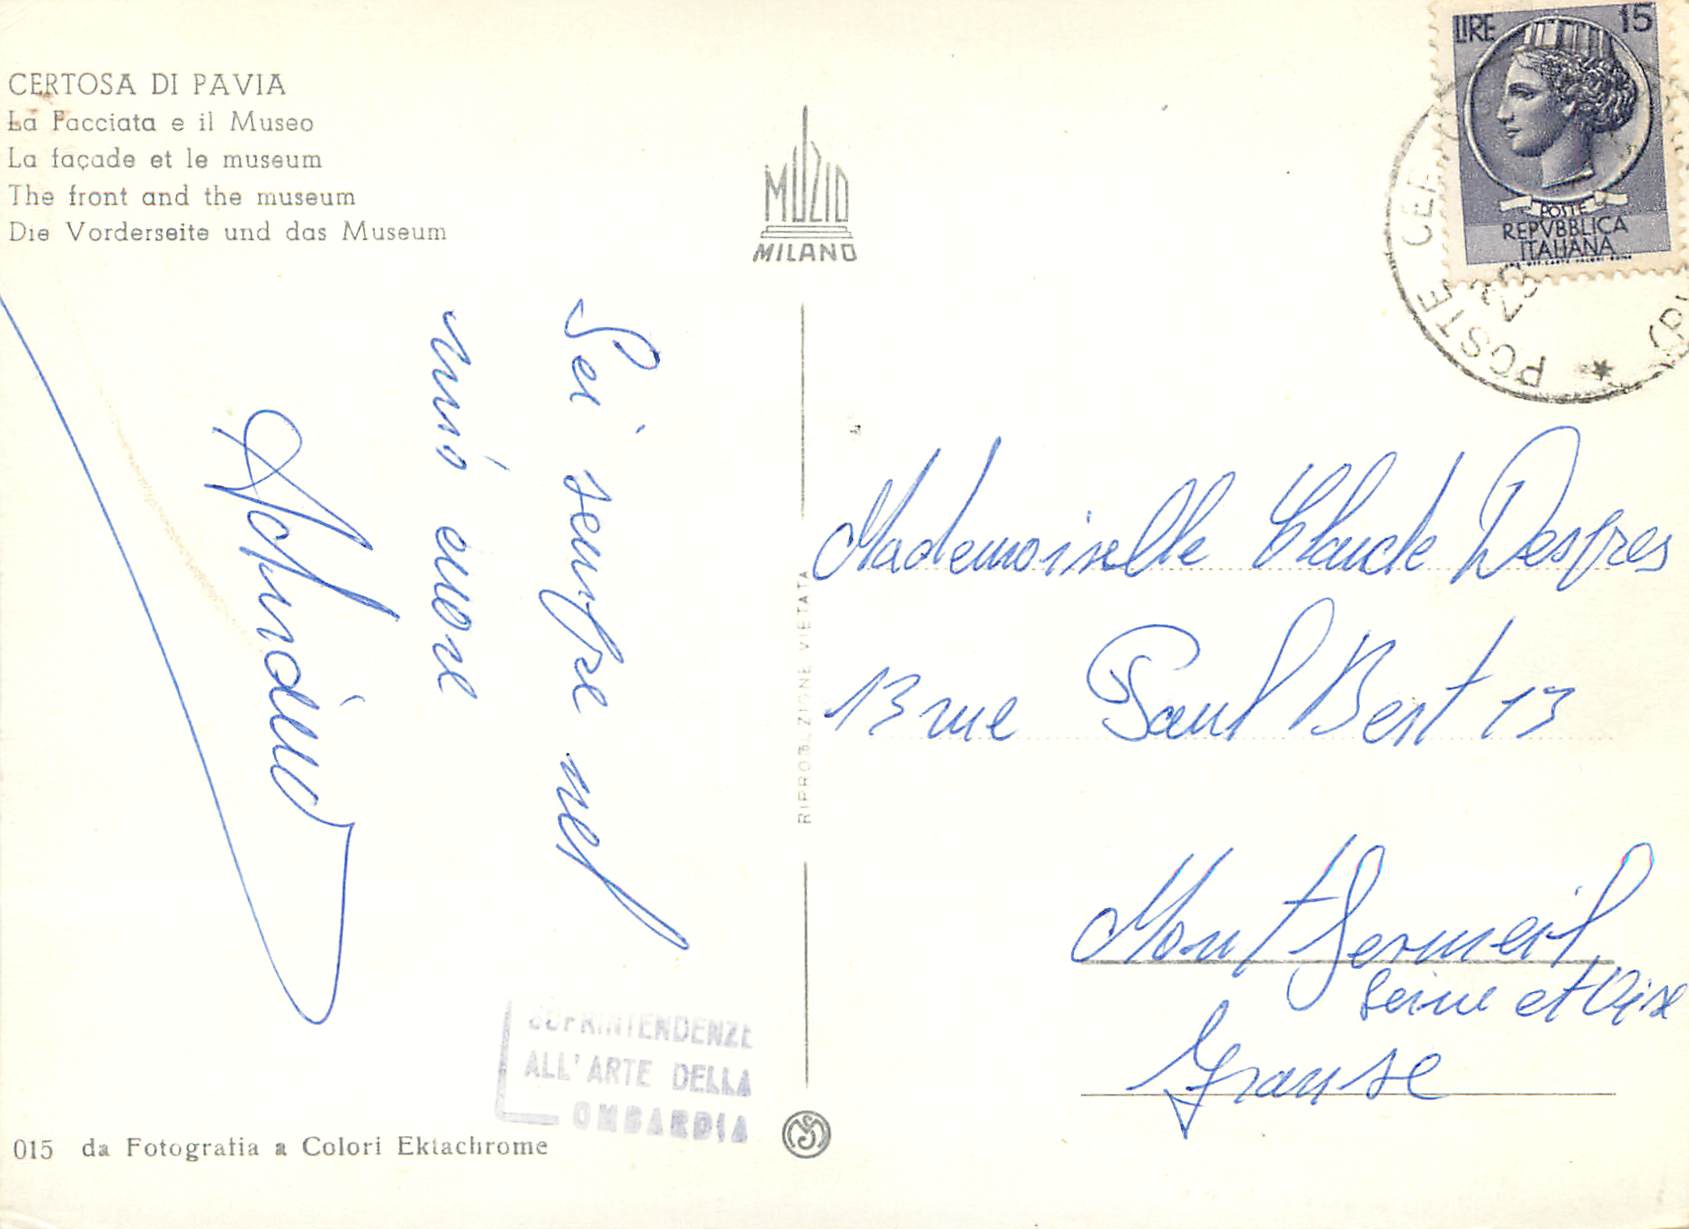 CERTOSA DI PAVIA
La Facciata e il Museo
La façade et le museum
The front and the museum
Die Vorderseite und das Museum
MUZIO
MILANO
LIRE 15
POSTE
REPVBBLICA
ITALIANA
POSTE CER
Sei sempre nel
mio cuore
RIPRODUZIONE VIETATA
Mademoiselle Claude Desfres
13 rue Paul Bert 13
Montfermeil
Seine et Oise
Franse
SOPRINTENDENZE
ALL'ARTE DELLA
OMBARDIA
015 da Fotografia a Colori Ektachrome